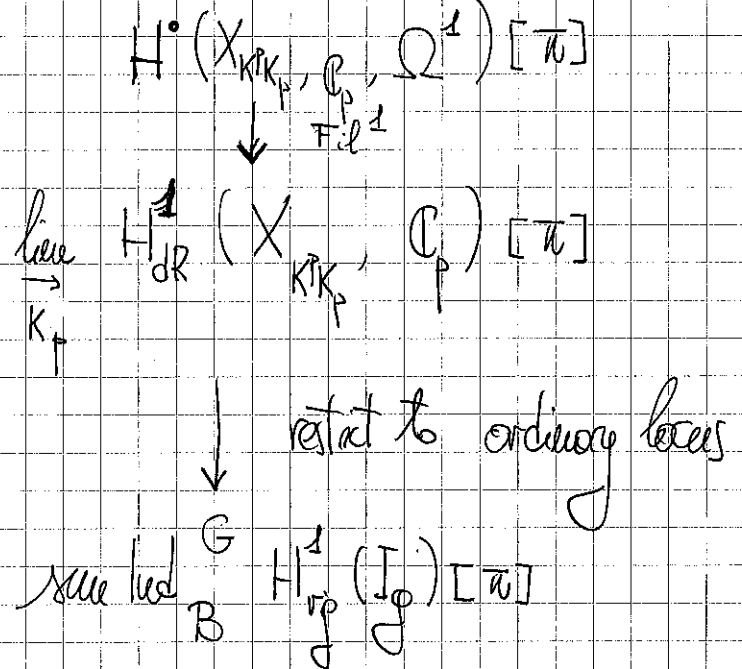 H⁰(X_{KᵖK_p, ℂ_p}, Ω¹)[π]
↓ Fil¹
lim→_{K_p} H¹_{dR}(X_{KᵖK_p}, ℂ_p)[π]
↓ restrict to ordinary locus
sm Ind_B^G H¹_{rig}(Ig)[π]